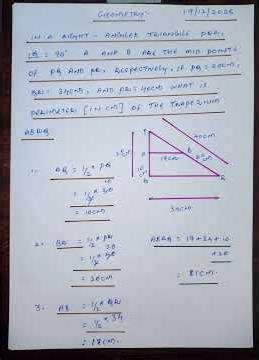 GEOMETRY:- 19/12/2025
IN A RIGHT - ANGLED TRIANGLE PQR,
= 90° A AND B ARE THE MID POINTS
OF PQ AND PR, RESPECTIVELY. IF PQ = 20cm,
QR = 34cm, AND PR = 40cm WHAT IS
PERIMETER [IN CM] OF THE TRAPEZIUM
ABRQ
1. AQ = 1/2 × PQ
= 1/2 × 20
= 10cm
40cm
17cm
34cm
2. BR = 1/2 × PR
= 1/2 ×
= 20cm
ABRQ = 17 + 34 + 10
+ 20
= 81cm.
3. AB = 1/2 × QR
= 1/2 × 34
= 17cm.